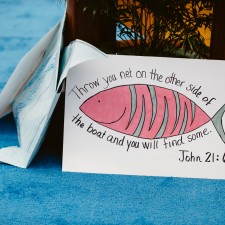 Throw you net on the other side of
the boat and you will find some.
John 21: